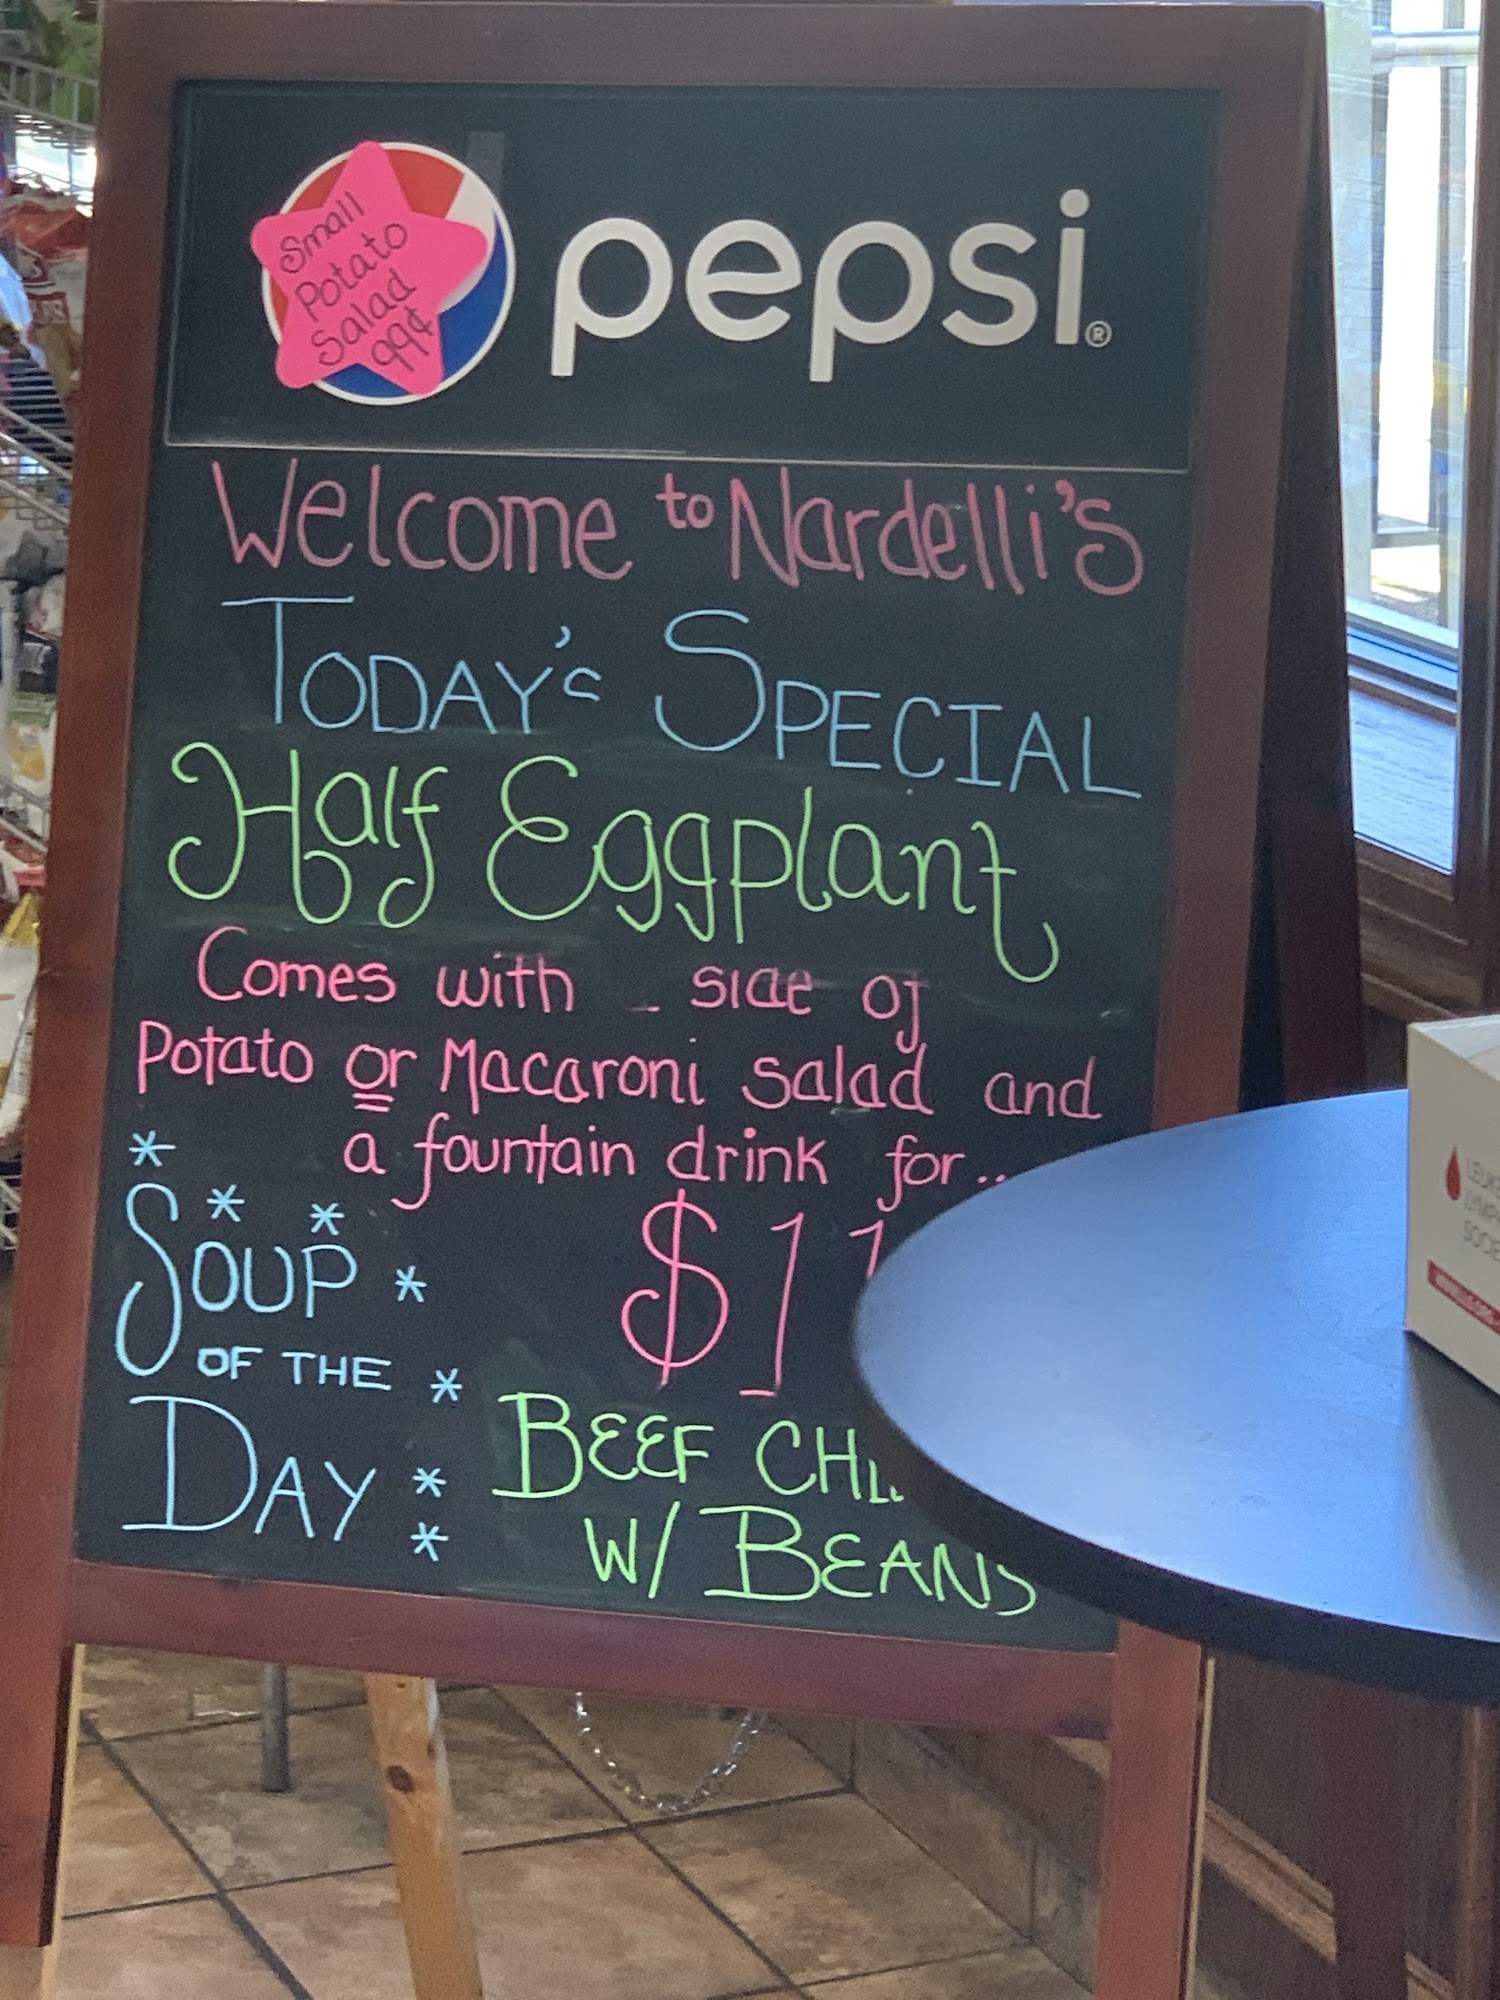 Small
Potato
Salad
99¢
pepsi®
Welcome to Nardelli's
TODAY'S SPECIAL
Half Eggplant
Comes with side of
Potato or Macaroni salad and
a fountain drink for...
SOUP
OF THE
DAY
BEEF
W/ BEANS